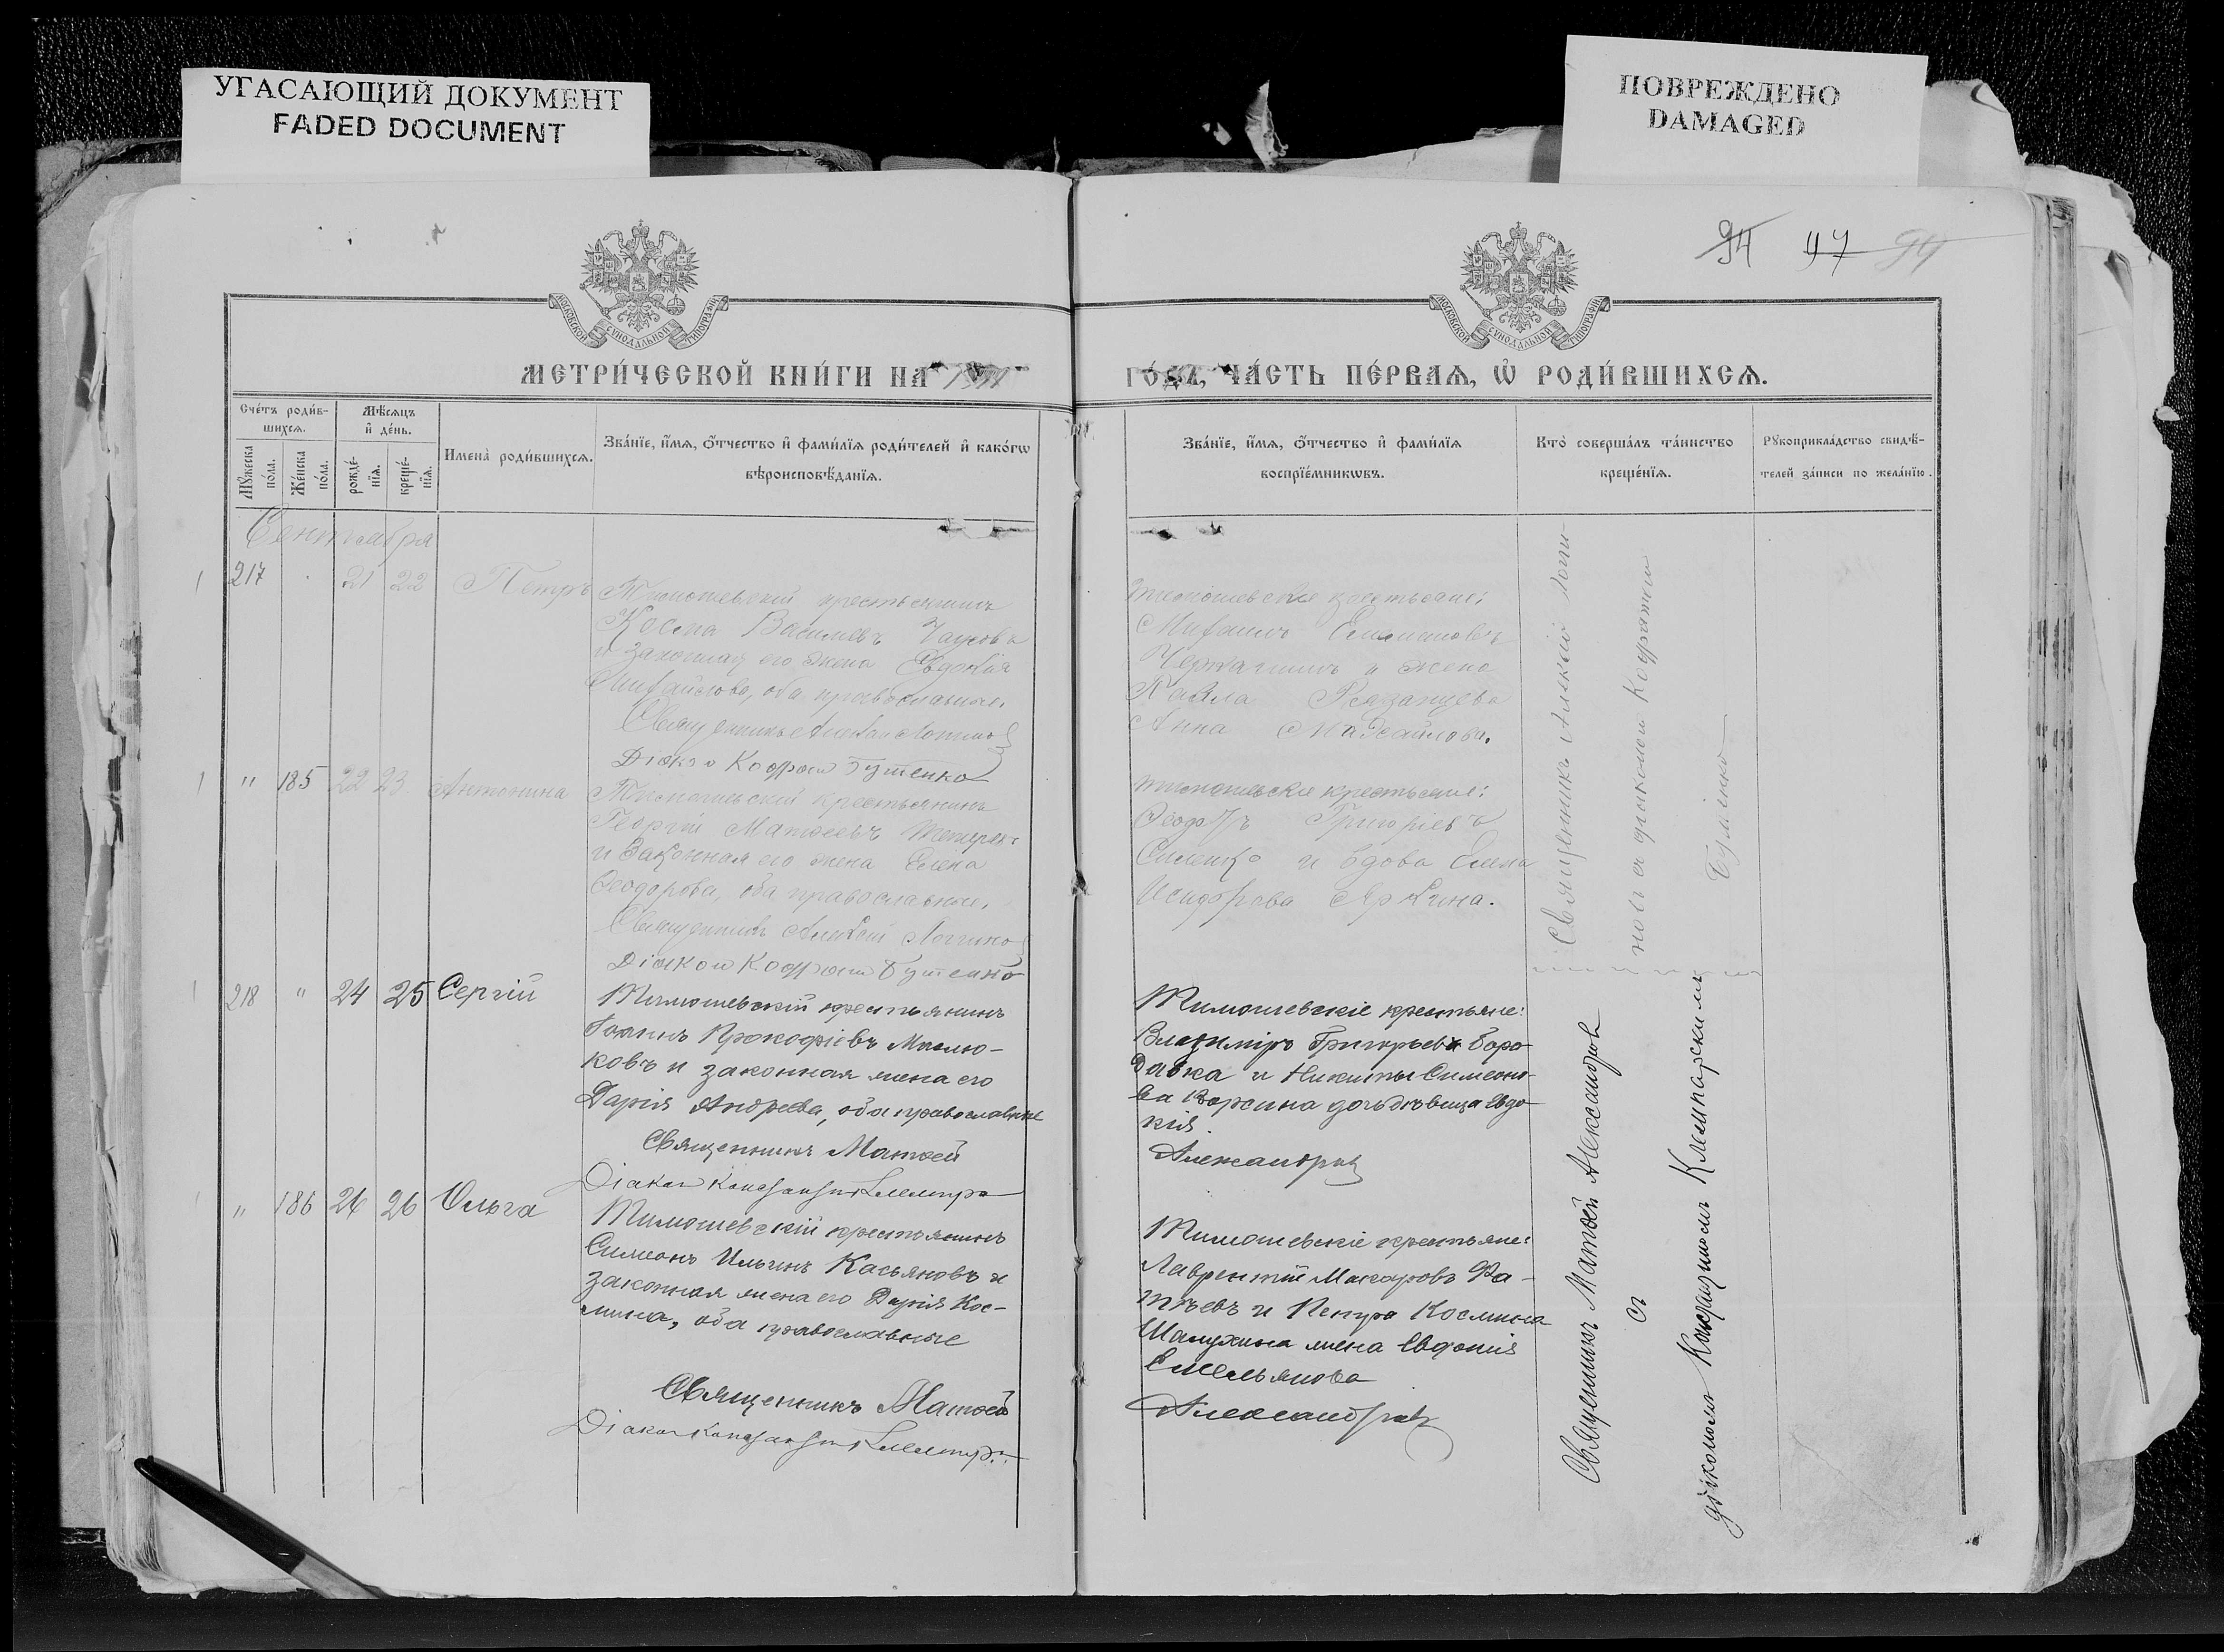 УГАСАЮЩИЙ ДОКУМЕНТ
FADED DOCUMENT
ПОВРЕЖДЕНО
DAMAGED
94 97 94
МОСКОВСКОЙ СѴНОДАЛЬНОЙ ТИПОГРАФІИ
МОСКОВСКОЙ СѴНОДАЛЬНОЙ ТИПОГРАФІИ
МЕТРИ́ЧЕСКОЙ КНИ́ГИ НА
ГО́ДЪ, ЧА́СТЬ ПЕ́РВАѦ, Ѡ҆ РОДИ́ВШИХСѦ.
Сче́тъ роди́в-
шихсѧ.
Мѣ́сѧцъ
и҆ де́нь.
Мꙋ́жеска
по́ла.
Же́нска
по́ла.
рожде́-
нїѧ.
креще́-
нїѧ.
Имена̀ роди́вшихсѧ.
Зва́нїе, и҆́мѧ, ѻ҆́тчество и҆ фами́лїѧ роди́телей и҆ како́гѡ
вѣроисповѣ́данїѧ.
Зва́нїе, и҆́мѧ, ѻ҆́тчество и҆ фами́лїѧ
воспрїе́мникѡвъ.
Кто̀ соверша́лъ та́инство
креще́нїѧ.
Рꙋкоприкла́дство свидѣ́-
телей за́писи по жела́нїю.
Сентября
217 21 22 Петръ
Тимошевский крестьянинъ
Косма Васильевъ
и законная его жена Евдокія
Михайлова, оба православные.
Священникъ Алексій Логинов
Діакон Кодрат Бутенко
Тимошевские крестьяне:
Михаилъ Емельяновъ
и жена
Павла Рязанцева
Анна Михайлова.
" 185 22 23 Антонина
Тимошевский крестьянинъ
Георгій Матѳеевъ
и законная его жена Елена
Ѳеодорова, оба православные.
Священникъ Алексій Логинов
Діакон Кодрат Бутенко
Тимошевские крестьяне:
Ѳеодоръ Григоріевъ
и вдова Елена
Исидорова
Священникъ Алексій Логи-
новъ съ діакономъ Кодратомъ
Бутенко
218 " 24 25 Сергій
Тимошевскій крестьянинъ
Іоаннъ Прокофіевъ Маслю-
ковъ и законная жена его
Дарія Андреева, оба православные
Священникъ Матѳей
Діакон Константин Клемпарс
Тимошевскіе крестьяне:
Владиміръ Григорьевъ Боро-
давка и Никиты Симеоно-
ва дочь дѣвица Евдо-
кія.
Александров
" 186 26 26 Ольга
Тимошевскій крестьянинъ
Симеонъ Ильинъ Касьяновъ и
законная жена его Дарія Кос-
мина, оба православные
Священникъ Матѳей
Діакон Константин Клемпарс
Тимошевскіе крестьяне:
Лаврентій Макаровъ Фа-
тѣевъ и Петра Космина
Шапухина жена Евдокія
Емельянова
Александров
Священникъ Матѳей Александров
съ
діакономъ Константиномъ Клемпарскимъ